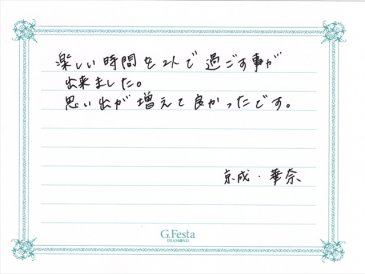 楽しい時間を2人で過ごす事が
出来ました。
思い出が増えて良かったです。
京成・華奈
G.Festa